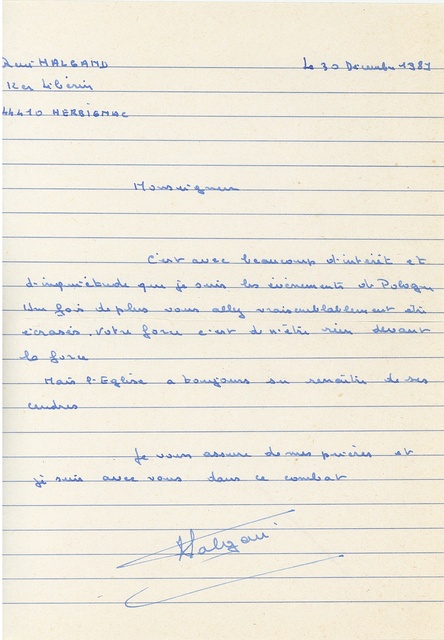 René MALGAND Le 30 Décembre 1981
Ker Libérin
44410 HERBIGNAC
Monseigneur
C'est avec beaucoup d'intérêt et
d'inquiétude que je suis les évènements de Pologne
Une fois de plus vous allez vraisemblablement être
écrasés. Votre force c'est de n'être rien devant
la force
Mais l'Eglise a toujours su renaître de ses
cendres
Je vous assure de mes prières et
je suis avec vous dans ce combat